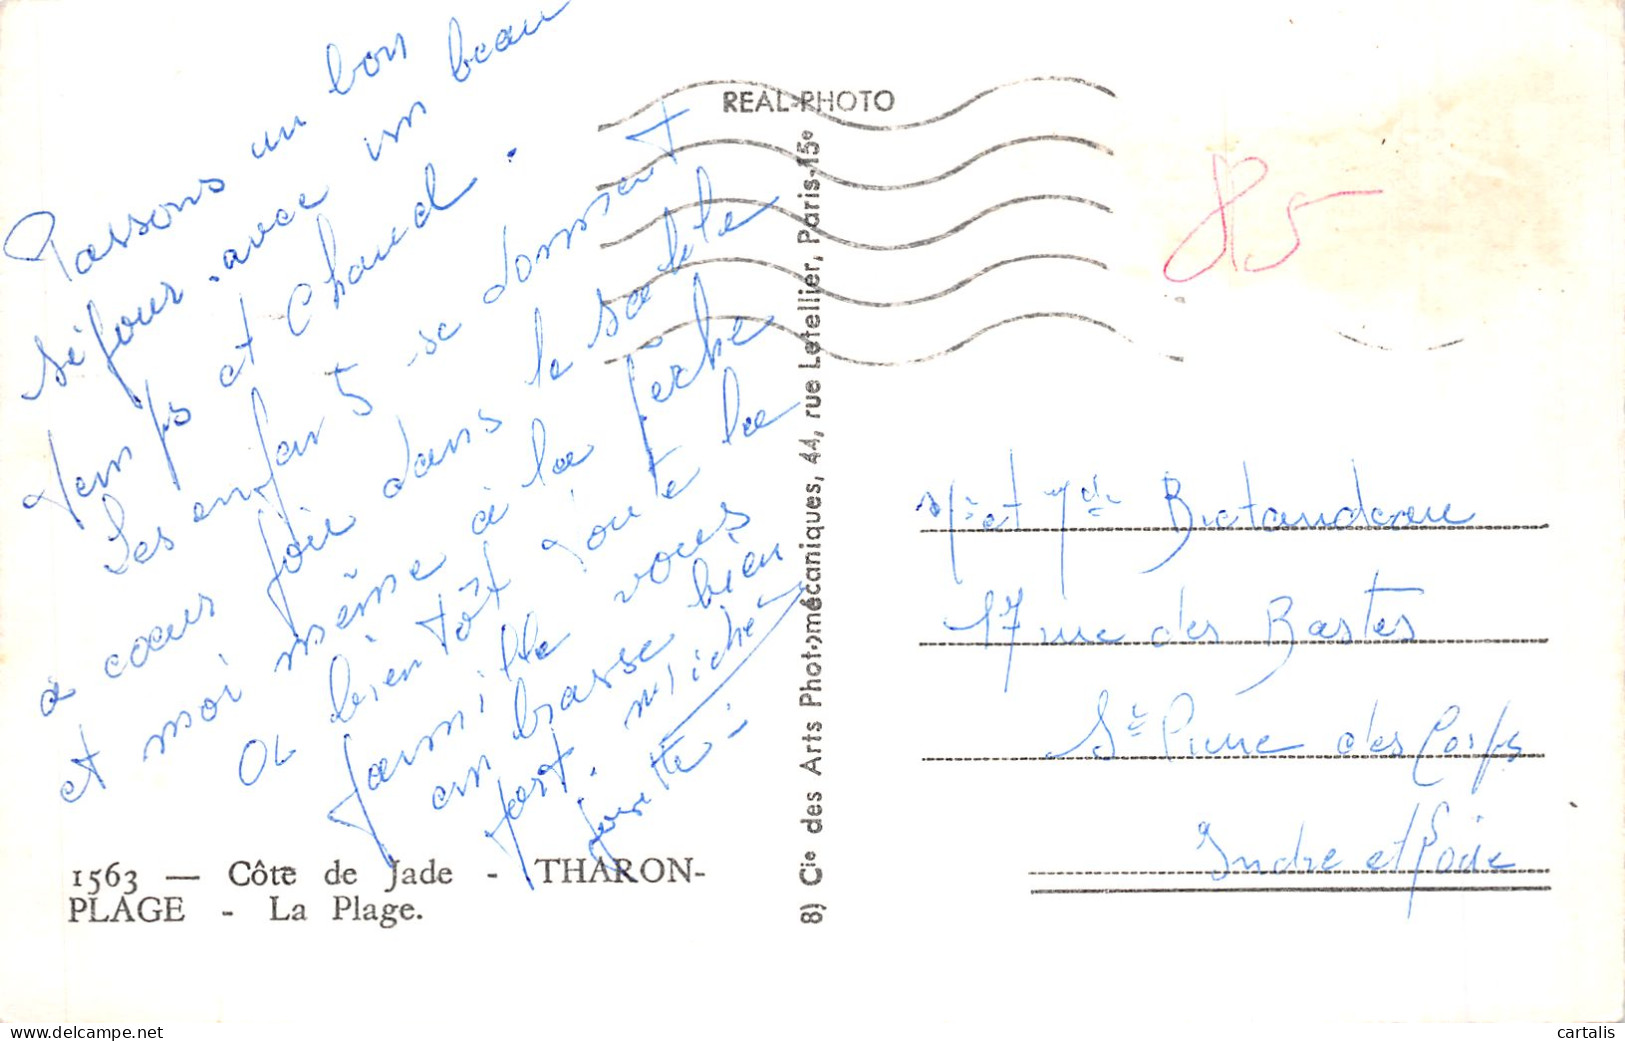 Passons un bon
séjour avec un beau
temps et chaud.
Les enfants se donnent
à coeur joie dans le sable
et moi même à la pêche
a bientôt toute la
famille vous
embrasse bien
fort. Miché
Josette
1563 — Côte de Jade - THARON-
PLAGE - La Plage.
REAL-PHOTO
8) Cie des Arts Photomécaniques, 44, rue Letellier, Paris-15e
85
Mr et Mde Bretaudeau
17 rue des Bastes
St Pierre des Corps
Indre et Loire
cartalis